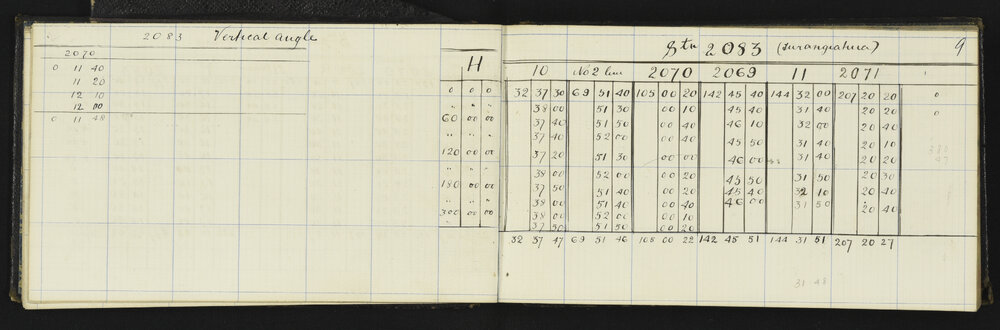 2083 Vertical Angle
2070
0 11 40
11 20
12 10
12 00
0 11 48
Stn 2083 (Turangiahua) 9
H 10 No 2 2070 2069 11 2071
0 0 0 32 37 30 69 51 40 105 00 20 142 45 40 144 32 00 207 20 20 0
" " " 38 00 51 30 00 10 45 40 31 40 20 20 0
60 00 00 37 40 51 50 00 40 46 10 32 00 20 40
" " " 37 40 52 00 00 40 45 50 31 40 20 10
120 00 00 37 20 51 30 00 00 46 00 31 40 20 20
" " " 38 00 52 00 00 20 45 50 31 50 20 30
180 00 00 37 50 51 40 00 20 45 40 32 10 20 40
" " " 38 00 51 40 00 40 46 00 31 50 20 40
300 00 00 38 00 52 00 00 10
" 37 50 51 50 00 20
32 37 47 69 51 46 105 00 22 142 45 51 144 31 51 207 20 27
31 48